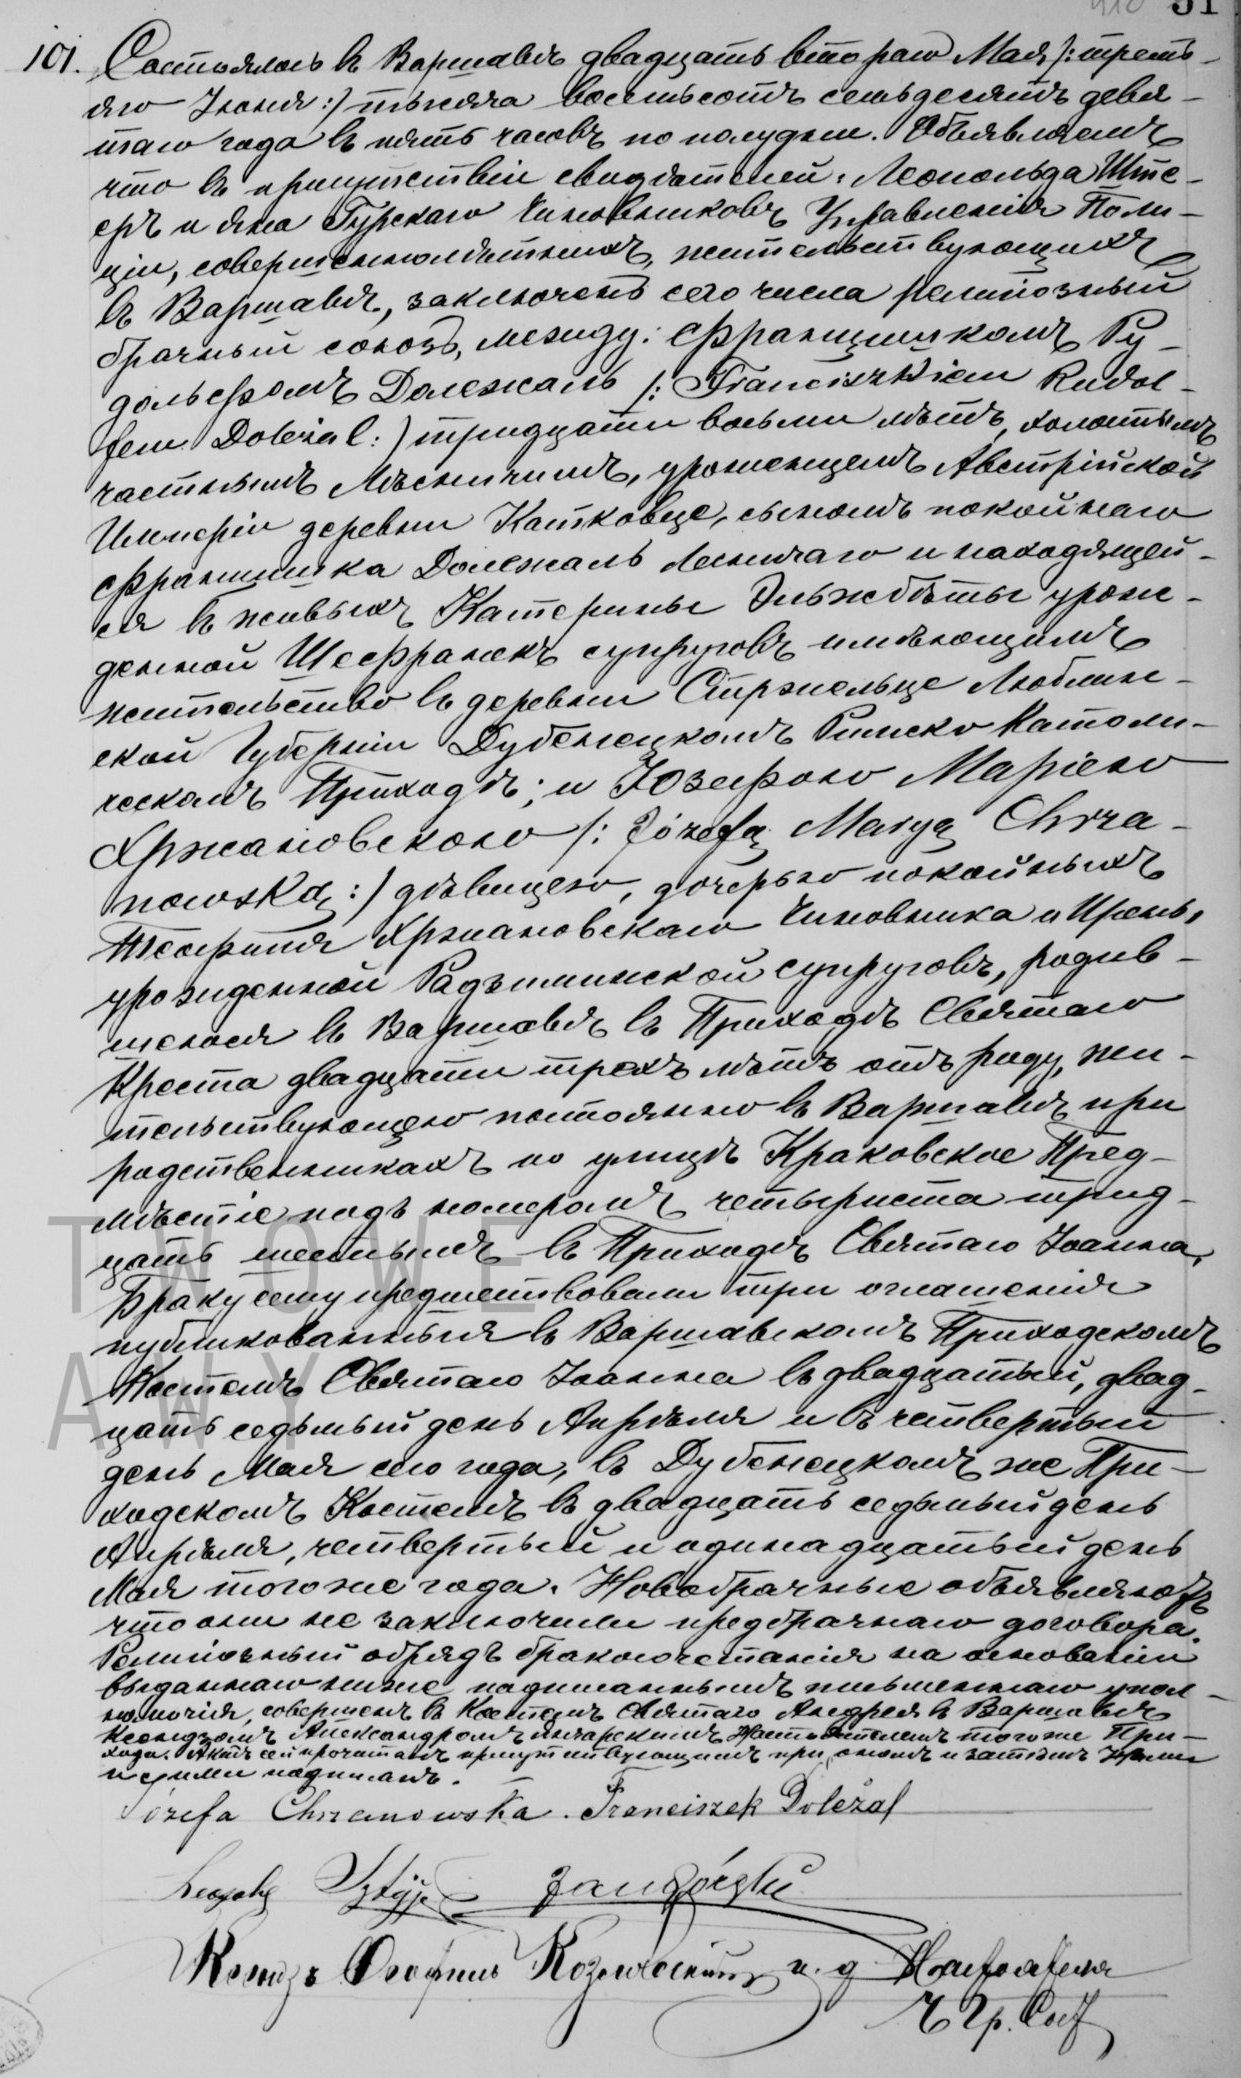 51
101. Состоялось въ Варшавѣ двадцать втораго Мая /: треть-
яго Іюня :/ тысяча восемьсотъ семьдесятъ девя-
таго года въ пять часовъ по полудни. Объявляемъ
что въ присутствіи свидѣтелей: Леопольда
и Яна Гурскаго Чиновниковъ Управленія Поли-
ціи, совершеннолѣтнихъ, жительствующихъ
въ Варшавѣ, заключенъ сего числа религіозный
брачный союзъ, между: Францишкомъ Ру-
дольфомъ Долежаль /: Franciszkiem Rudol-
fem Doležal :/ тридцати восьми лѣтъ, холостымъ
частнымъ Лѣсничимъ, уроженцемъ Австрійской
Имперіи деревни Катковце, сыномъ покойнаго
Францишка Долежаль Лесничаго и находящей-
ся въ живыхъ Катерины Эльжбѣты урож-
денной Шефранекъ супруговъ имѣющимъ
жительство въ деревни Стржельце Люблин-
ской Губерніи Дубенецкомъ Римско Католи-
ческомъ Приходѣ; и Юзефою Маріею
Хржановскою /: Józefą Maryą Chrza-
nowską :/ дѣвицею, дочерью покойныхъ
Теофиля Хржановскаго Чиновника и Ирены,
урожденной Радзиминской супруговъ, родив-
шеюся въ Варшавѣ въ Приходѣ Святаго
Креста двадцати трехъ лѣтъ отъ роду, жи-
тельствующею постоянно въ Варшавѣ при
родственникахъ по улицѣ Краковское Пред-
мѣстіе подъ номеромъ четыриста трид-
цать шестымъ въ Приходѣ Святаго Іоанна.
Браку сему предшествовали три оглашенія
публикованныя въ Варшавскомъ Приходскомъ
Костелѣ Святаго Іоанна въ двадцатый, двад-
цать седьмый день Апрѣля и въ четвертый
день Мая сего года, въ Дубенецкомъ же При-
ходскомъ Костелѣ въ двадцать седьмый день
Апрѣля, четвертый и одинадцатый день
Мая того же года. Новобрачные объявляютъ
что они не заключили предбрачнаго договора.
Религіозный обрядъ бракосочетанія на основаніи
выданнаго ниже подписаннымъ письменнаго упол-
номочія, совершенъ въ Костелѣ Святаго Андрея въ Варшавѣ
Ксендзомъ Александромъ Настоятелемъ того же При-
хода. Актъ сей прочитанъ присутствующимъ при ономъ и затѣмъ Нами
и сими подписанъ.
Józefa Chrzanowska. Franciszek Doležal
Leopold Jan Górski
Ксендзъ Теофиль и. д. Настоятеля
Ч. Гр. Сост.
TWOWE
AWY